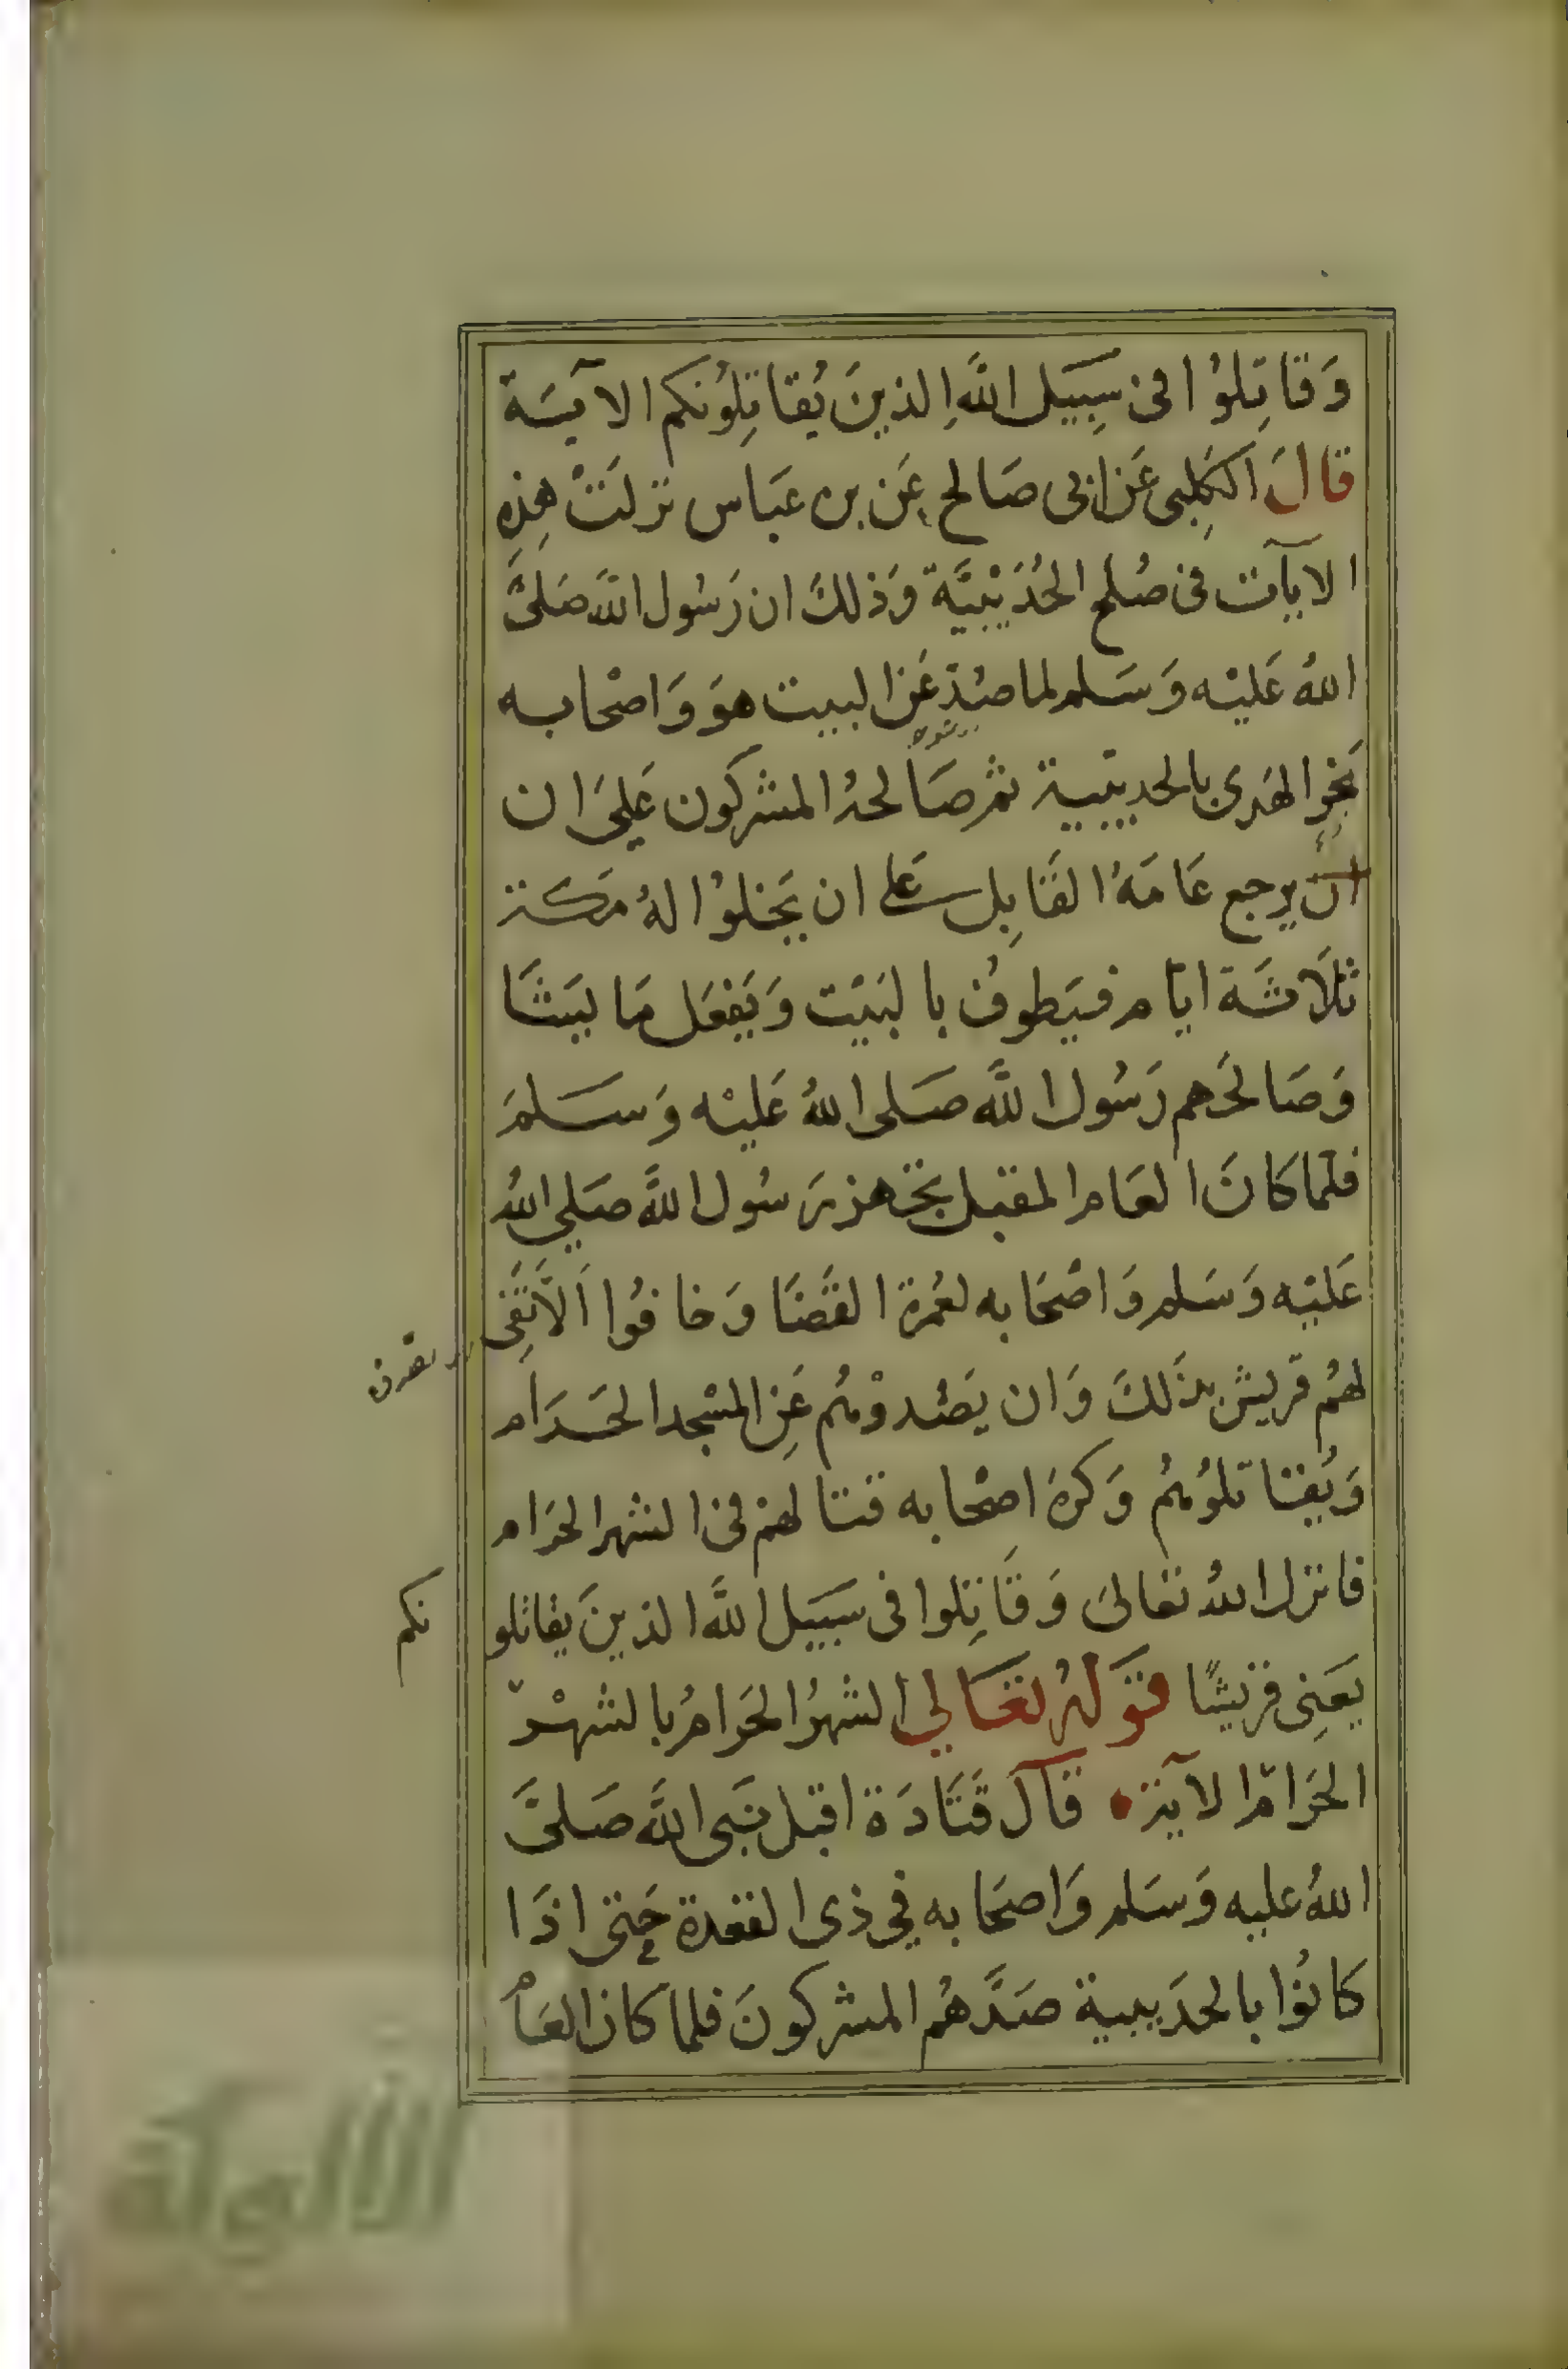 وَقَاتِلُوا فى سَبِيَل اللَّهِ الذينَ يُقاتِلُونكم الآيَـة
قالَ الكلبى عَن ابى صَالح عَن بن عَبَاس نزلَتْ هذِهِ
الايآت فى صُلح الحُدَيْبيَّة وَذلكَ ان رَسُول اللَّه صَلىَّ
اللهُ عَليْه وَسَلم لما صُدّ عَن البيت هوَ وَاصْحَابه
نَحَر الهَدى بالحديبية ثم صَالحهُ المشركون عَلىَ ان
ان يرجع عَامَهُ القَابِل على ان يَخلوُا لهُ مَكـة
ثلَاثَة ايَام فيَطوفُ بالبَيْت وَيَفعَل مَا يَشَا
وَصَالحَهم رَسُول اللَّه صَلى اللهُ عَليْه وَسَلمَ
فلما كانَ العَام المقبل تجَهز رَسُول اللَّه صَلى اللهُ
عَليْه وَسَلم وَاصْحَابه لعُمرة القَضَا وَخافوُا الَّا تَفِى
تفون
لهُم قريش بذَلكَ وَان يَصُدوْهُم عَنِ المسْجد الحَـرَام
وَيُقاتلوُهُم وَكرهَ اصْحَابه قتالهمْ فى الشهر الحَرَام
فانزل اللهُ تعَالىَ وَقَاتِلوا فى سَبيَل اللَّه الذينَ يقاتلو
نكم
يَعنِى قرَيشًا قوَلهُ تعَالي الشهرُ الحَرَامُ بالشهْر
الحَرَام الآية قالَ قَتَادَة اقبَل نَبى اللَّه صَلىَّ
اللهُ عليه وَسَلم وَاصحَابه في ذى القعدة حَتى اذَا
كانوُا بالحدَيبية صَدَّهُم المشركونَ فلما كان العَامُ
الألوكة